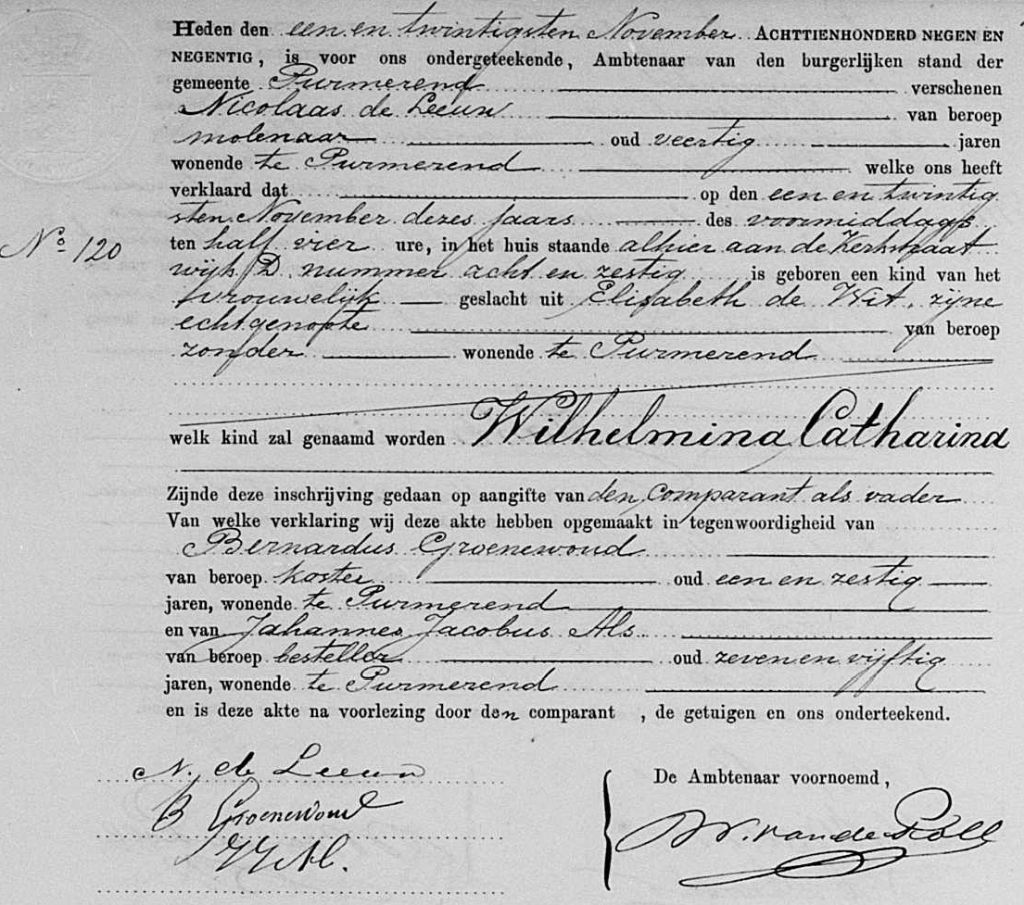 Heden den een en twintigsten November ACHTTIENHONDERD NEGEN EN
NEGENTIG, is voor ons ondergeteekende, Ambtenaar van den burgerlijken stand der
gemeente Purmerend verschenen
Nicolaas de Leeuw van beroep
molenaar oud veertig jaren
wonende te Purmerend welke ons heeft
verklaard dat op den een en twintig
sten November dezes jaars des voormiddags
N° 120 ten half vier ure, in het huis staande alhier aan de Kerkstraat
wijk D. nummer acht en zestig is geboren een kind van het
vrouwelijk geslacht uit Elisabeth de Wit, zijne
echtgenoote van beroep
zonder wonende te Purmerend
welk kind zal genaamd worden Wilhelmina Catharina
Zijnde deze inschrijving gedaan op aangifte van den Comparant als vader
Van welke verklaring wij deze akte hebben opgemaakt in tegenwoordigheid van
Bernardus Groenewoud
van beroep koster oud een en zestig
jaren, wonende te Purmerend
en van Johannes Jacobus Als
van beroep besteller oud zeven en vijftig
jaren, wonende te Purmerend
en is deze akte na voorlezing door den comparant , de getuigen en ons onderteekend.
N. de Leeuw
De Ambtenaar voornoemd,
B Groenewoud
JJ Als.